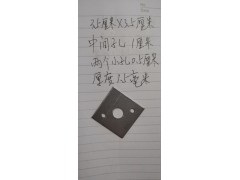 3.5厘米X3.5厘米
中间孔1厘米
两个小孔0.5厘米
厚度1.5毫米